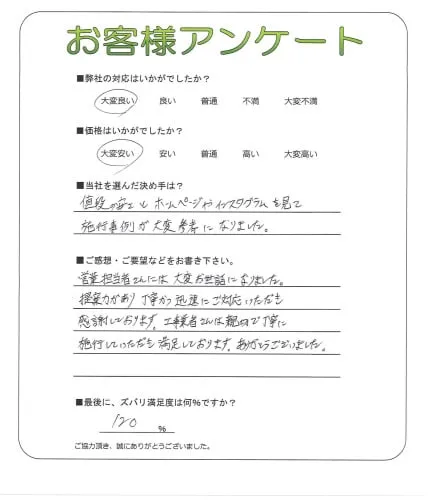 お客様アンケート
■弊社の対応はいかがでしたか?
大変良い 良い 普通 不満 大変不満
■価格はいかがでしたか?
大変安い 安い 普通 高い 大変高い
■当社を選んだ決め手は?
値段の安さとホームページやインスタグラムを見て
施行事例が大変参考になりました。
■ご感想・ご要望などをお書き下さい。
営業担当者さんには大変お世話になりました。
提案力があり丁寧かつ迅速にご対応いただき
感謝しております。工事業者さんは親切で丁寧に
施行していただき満足しております。ありがとうございました。
■最後に、ズバリ満足度は何%ですか?
120 %
ご協力頂き、誠にありがとうございました。